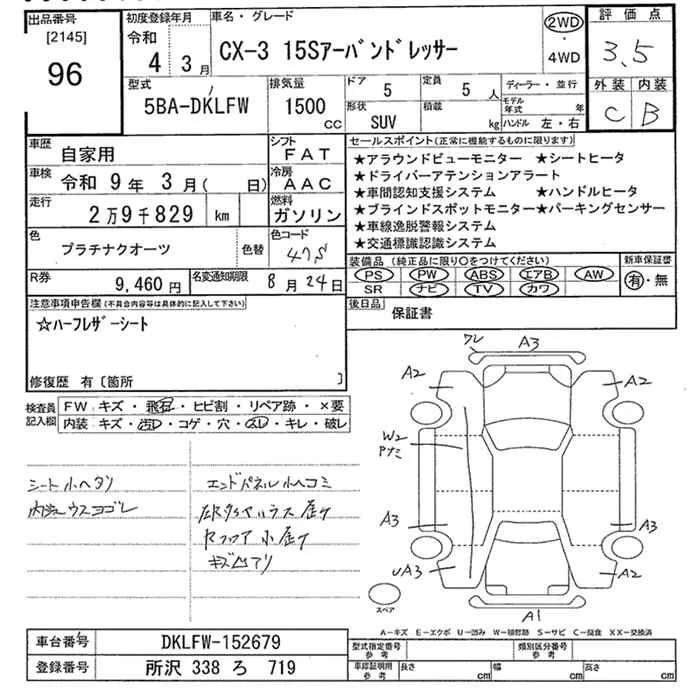 出品番号
[2145]
96
初度登録年月
令和
4 3月
車名・グレード
CX-3 15Sアーバンドレッサー
2WD
・
4WD
評価点
3.5
外装 内装
C B
型式
5BA-DKLFW
排気量
1500
CC
ドア
5
定員
5 人
形状
SUV
積載
kg
ディーラー・並行
モデル年式 年
ハンドル 左・右
車歴
自家用
シフト
FAT
車検
令和 9年 3月( 日)
冷房
AAC
走行
2万9千829 km
燃料
ガソリン
色
プラチナクオーツ
色替
色コード
47S
R券
9,460円
名変通知期限
8月24日
セールスポイント(正常に機能するものに限ります)
★アラウンドビューモニター ★シートヒータ
★ドライバーアテンションアラート
★車間認知支援システム ★ハンドルヒータ
★ブラインドスポットモニター★パーキングセンサー
★車線逸脱警報システム
★交通標識認識システム
装備品(純正品に限り○をつけてください)
PS PW ABS エアB AW
SR ナビ TV カワ
新車保証書
有・無
後日品
保証書
注意事項申告欄(不具合内容等は具体的に記入して下さい)
☆ハーフレザーシート
修復歴 有〔箇所 〕
検査員記入欄
FW キズ・飛石・ヒビ割・リペア跡・×要
内装 キズ・汚レ・コゲ・穴・スレ・キレ・破レ
シート小ヘタリ
内張ウスヨゴレ
エンドパネル小ヘコミ
小歪ケ
キズ凹アリ
ワレ
A3
A2
A2
W2
A3
A3
UA3
A2
A1
スペア
A-キズ E-エクボ U-凹み W-補修跡 S-サビ C-腐食 XX-交換済
車台番号
DKLFW-152679
登録番号
所沢 338 ろ 719
型式指定番号
参考
類別区分番号
参考
車体証明用
参考
長さ cm 幅 cm 高さ cm